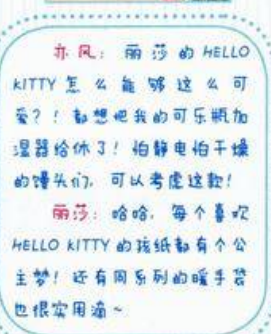 亦风：丽莎的HELLO
KITTY怎么能够这么可
爱？！都想把我的可乐瓶加
湿器给休了！怕静电怕干燥
的馒头们，可以考虑这款！
丽莎：哈哈，每个喜欢
HELLO KITTY的孩纸都有个公
主梦！还有同系列的暖手袋
也很实用滴~